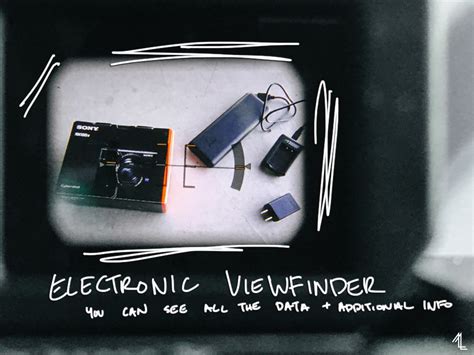 SONY
Cyber-shot
ELECTRONIC VIEWFINDER
YOU CAN SEE ALL THE DATA + ADDITIONAL INFO